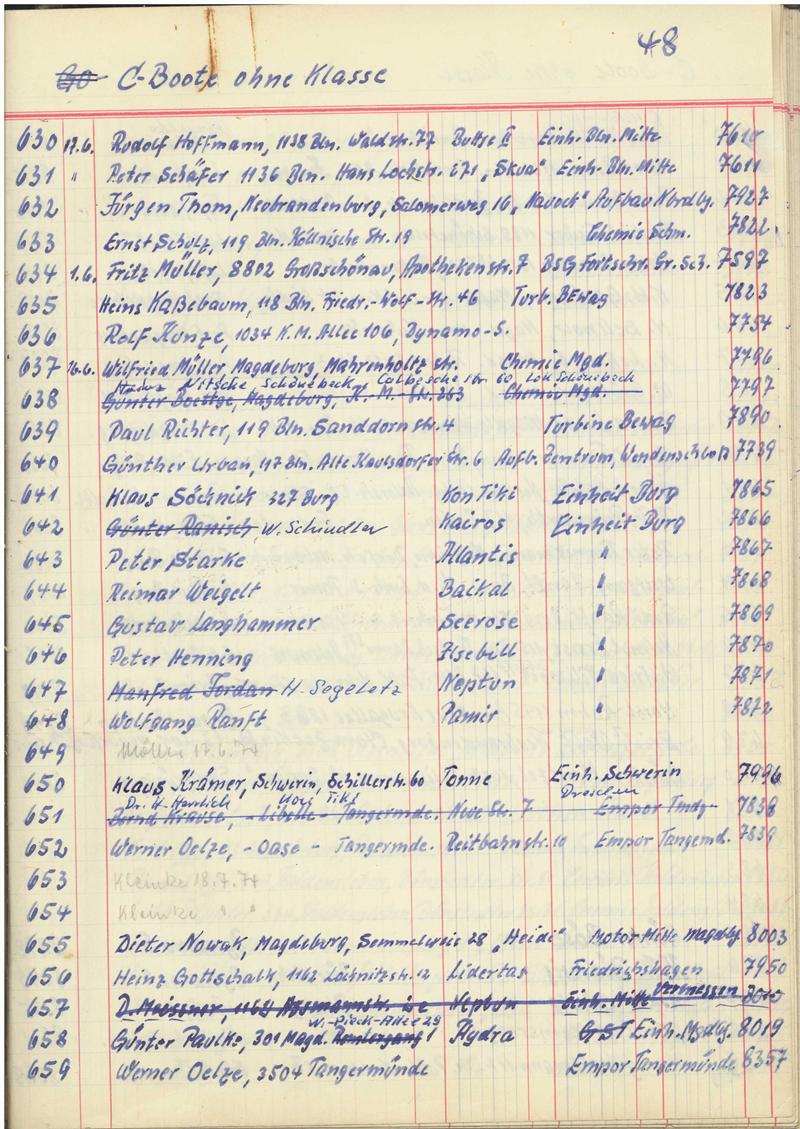 48
Go C-Boote ohne Klasse
630 17.6. Rudolf Hoffmann, 1138 Bln. Waldstr. 77 Buttje II Einh. Bln. Mitte 7610
631 " Peter Schäfer 1136 Bln. Hans Lochstr. 271 „Skua" Einh. Bln. Mitte 7611
632 Jürgen Thom, Neubrandenburg, Salomerweg 16 „ Aufbau Nordbg. 7927
633 Ernst Schulz, 119 Bln. Köllnische Str. 19 Chemie Schm. 7822
634 1.6. Fritz Müller, 8802 Großschönau, Apothekenstr. 7 BSG Fortschr. Gr. Sch. 7597
635 Heins Kaßebaum, 118 Bln. Friedr.-Wolf-Str. 46 Turb. BEwag 7823
636 Rolf Kunze, 1034 K.M. Allee 106, Dynamo-S. 7754
637 16.6. Wilfried Müller, Magdeburg, Mahrenholtz str. Chemie Mgd. 7796
Nitsche, Schönebeck, Calbesche Str. 60, Lok Schönebeck
638 Günter Boettge, Magdeburg, K.-M.-Str. 263 Chemie Mgd. 7797
639 Paul Richter, 119 Bln. Sanddornstr. 4 Turbine Bewag 7890
640 Günther Urban, 117 Bln. Alte Kaulsdorfer Str. 6 Aufb. Zentrum, Wendenschloß 7739
641 Klaus Söchnick 327 Burg Kon Tiki Einheit Burg 7865
642 Günter Ranisch W. Schindler Kairos Einheit Burg 7866
643 Peter Starke Atlantis " 7867
644 Reimar Weigelt Baikal " 7868
645 Gustav Langhammer Seerose " 7869
646 Peter Henning Ilsebill " 7870
647 Manfred Jordan H. Segeletz Neptun " 7871
648 Wolfgang Ranft Pamir " 7872
649 Möller 17.6.74
650 Klaus Krämer, Schwerin, Schillerstr. 60 Tonne Einh. Schwerin 7996
Dr. Tiki Dresden
651 Bernd Krause, - Libelle - Tangermde. Neue Str. 7 Empor Tmdg. 7838
652 Werner Oelze, - Oase - Tangermde. Reitbahnstr. 10 Empor Tangemd. 7839
653 Kleinke 18.7.74
654 Kleinke " "
655 Dieter Nowak, Magdeburg, Semmelweis 28 „Heidi" Motor Mitte Magdebg. 8003
656 Heinz Gottschalk, 1162 Löcknitzstr. 12 Lidertas Friedrichshagen 7950
657 D. Meissner, 1162 Assmannstr. Neptun Einh. Mitte Vermessen
W.-Pieck-Allee 29
658 Günter Paulke, 301 Magd. 1 Hydra GST Einh. Mgdbg. 8019
659 Werner Oelze, 3504 Tangermünde Empor Tangermünde 8357